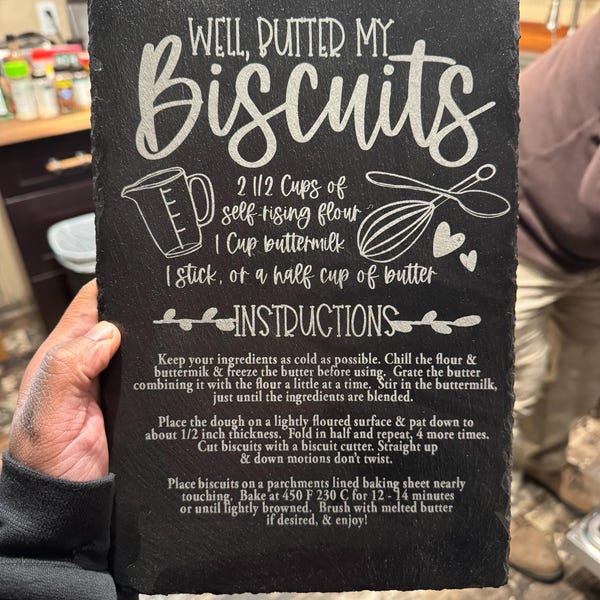 WELL, BUTTER MY
Biscuits
2 1/2 Cups of
self-rising flour
1 Cup buttermilk
1 stick, or a half cup of butter
INSTRUCTIONS
Keep your ingredients as cold as possible. Chill the flour &
buttermik & freeze the butter before using. Grate the butter
combining it with the flour a little at a time. Stir in the buttermilk,
just until the ingredients are blended.
Place the dough on a lightly floured surface & pat down to
about 1/2 inch thickness. Fold in half and repeat, 4 more times.
Cut biscuits with a biscuit cutter. Straight up
& down motions don't twist.
Place biscuits on a parchments lined baking sheet nearly
touching. Bake at 450 F 230 C for 12 - 14 minutes
or until lightly browned. Brush with melted butter
if desired, & enjoy!